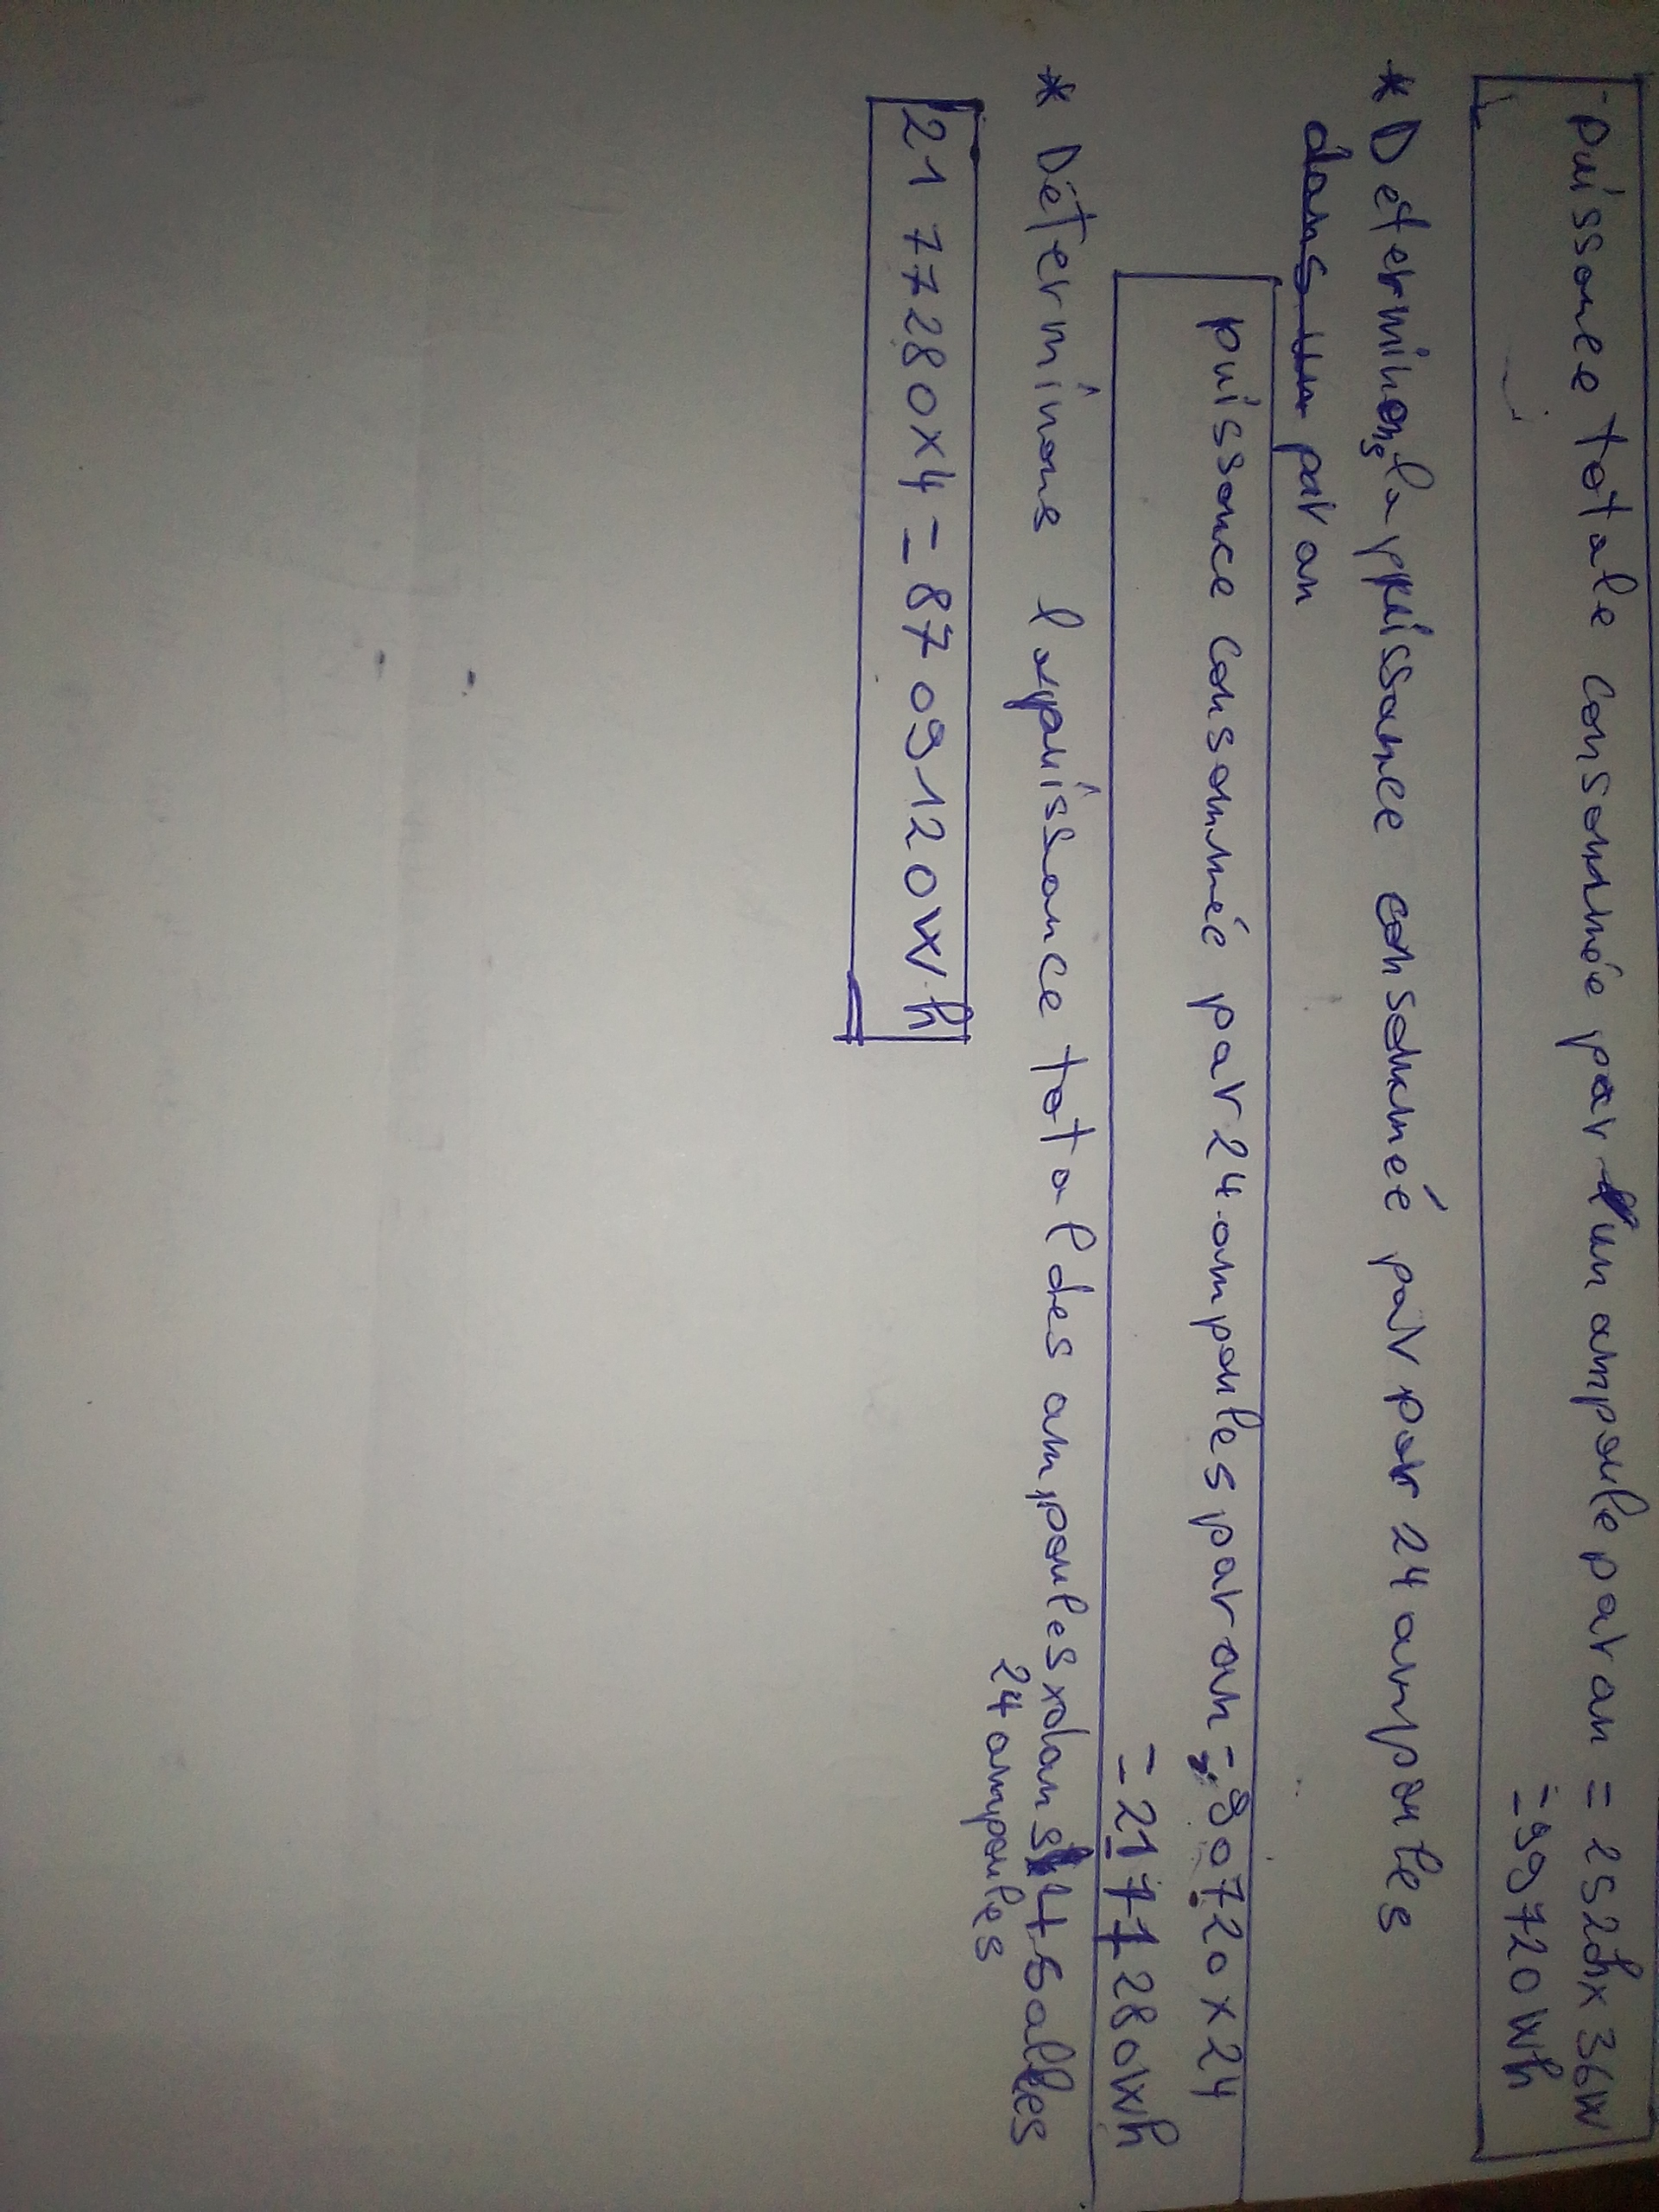 - puissance totale consommée par un ampoule par an = 252h x 36W
= 99720Wh
* Déterminons la puissance consommée par par 24 ampoules
dans un par an
puissance consommée par 24 ampoules par an = 90720 x 24
= 2177280Wh
* Déterminons la puissance total des ampoules x dans 4 salles
24 ampoules
2177280 x 4 = 8709120Wh